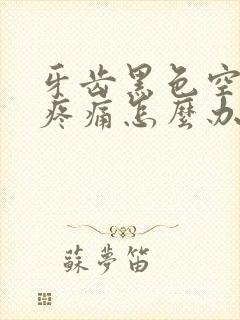 牙齿黑色空
疼痛怎麼办
蘇夢笛